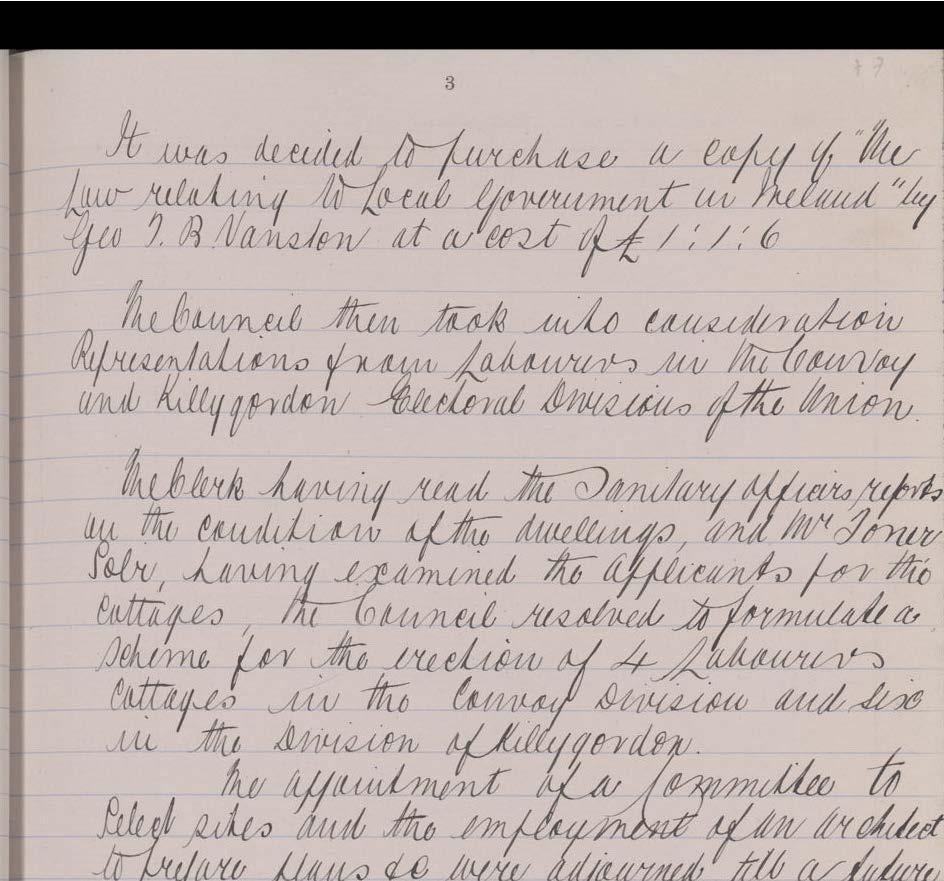 3
It was decided to purchase a copy of "The
Law relating to Local Government in Ireland" by
Geo T. B. Vanston at a cost of £1:1:6
The Council then took into consideration
Representations from Labourers in the Convoy
and Killygordon Electoral Divisions of the Union.
The Clerk having read the Sanitary officers reports
on the condition of the dwellings, and Mr Toner
Solr, having examined the applicants for the
Cottages, the Council resolved to formulate a
scheme for the erection of 4 Labourers
Cottages in the Convoy Division and six
in the Division of Killygordon.
The appointment of a Committee to
Select sites and the employment of an architect
to prepare plans &c were adjourned till a future